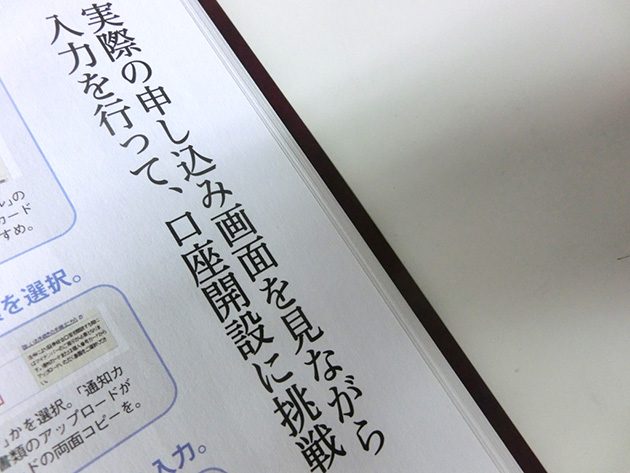 実際の申し込み画面を見ながら
入力を行って、口座開設に挑戦
ル」の
カード
すめ。
を選択。
」かを選択。「通知カ
書類のアップロードが
ドの両面コピーを。
入力。